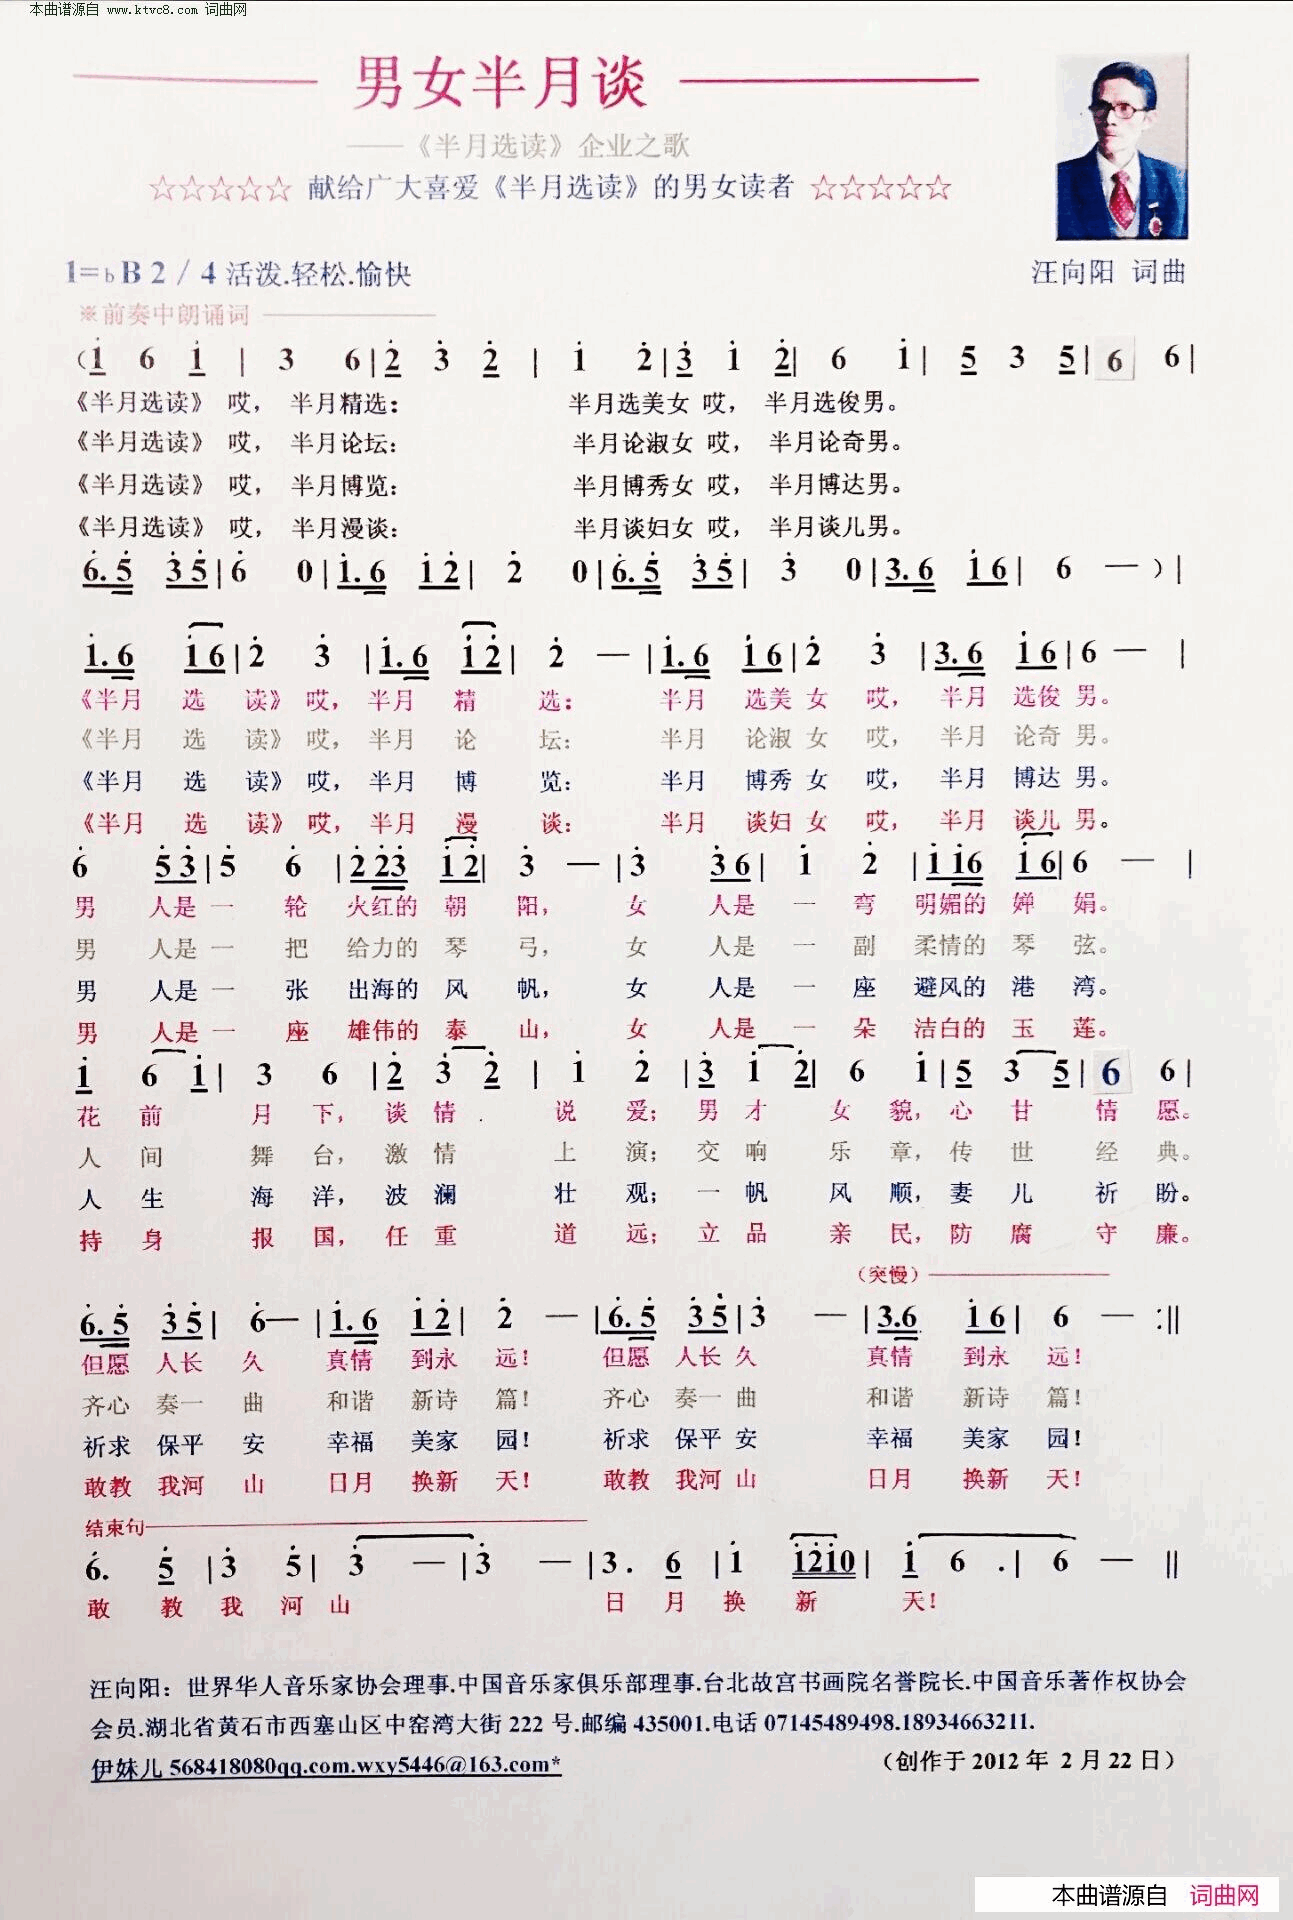 本曲谱源自 www.ktvc8.com 词曲网
男女半月谈
——《半月选读》企业之歌
☆☆☆☆☆ 献给广大喜爱《半月选读》的男女读者 ☆☆☆☆☆
1=♭B 2/4 活泼.轻松.愉快
汪向阳 词曲
※前奏中朗诵词
(i 6 i | 3 6 | 2̇ 3̇ 2̇ | i 2̇ | 3̇ i 2̇ | 6 i | 5 3 5 | 6 6 |
《半月选读》 哎， 半月精选： 半月选美女 哎， 半月选俊男。
《半月选读》 哎， 半月论坛： 半月论淑女 哎， 半月论奇男。
《半月选读》 哎， 半月博览： 半月博秀女 哎， 半月博达男。
《半月选读》 哎， 半月漫谈： 半月谈妇女 哎， 半月谈儿男。
6̇. 5̇ 3̇ 5̇ | 6̇ 0 | i. 6 i 2̇ | 2̇ 0 | 6̇. 5̇ 3̇ 5̇ | 3̇ 0 | 3. 6 i 6 | 6 — ) |
i. 6 i 6 | 2̇ 3̇ | i. 6 i 2̇ | 2̇ — | i. 6 i 6 | 2̇ 3̇ | 3. 6 i 6 | 6 — |
《半月 选 读》 哎， 半月 精 选： 半月 选美 女 哎， 半月 选俊 男。
《半月 选 读》 哎， 半月 论 坛： 半月 论淑 女 哎， 半月 论奇 男。
《半月 选 读》 哎， 半月 博 览： 半月 博秀 女 哎， 半月 博达 男。
《半月 选 读》 哎， 半月 漫 谈： 半月 谈妇 女 哎， 半月 谈儿 男。
6̇ 5̇ 3̇ | 5̇ 6̇ | 2̇ 2̇ 3̇ i 2̇ | 3̇ — | 3̇ 3̇ 6 | i 2̇ | i i 6 i 6 | 6 — |
男 人是 一 轮 火红的 朝 阳， 女 人是 一 弯 明媚的 婵 娟。
男 人是 一 把 给力的 琴 弓， 女 人是 一 副 柔情的 琴 弦。
男 人是 一 张 出海的 风 帆， 女 人是 一 座 避风的 港 湾。
男 人是 一 座 雄伟的 泰 山， 女 人是 一 朵 洁白的 玉 莲。
i 6 i | 3 6 | 2̇ 3̇ 2̇ | i 2̇ | 3̇ i 2̇ | 6 i | 5 3 5 | 6 6 |
花 前 月 下， 谈 情 说 爱； 男 才 女 貌， 心 甘 情 愿。
人 间 舞 台， 激 情 上 演； 交 响 乐 章， 传 世 经 典。
人 生 海 洋， 波 澜 壮 观； 一 帆 风 顺， 妻 儿 祈 盼。
持 身 报 国， 任 重 道 远； 立 品 亲 民， 防 腐 守 廉。
（突慢）
6̇. 5̇ 3̇ 5̇ | 6̇ — | i. 6 i 2̇ | 2̇ — | 6̇. 5̇ 3̇ 5̇ | 3̇ — | 3. 6 i 6 | 6 — :‖
但愿 人长 久 真情 到永 远！ 但愿 人长 久 真情 到永 远！
齐心 奏一 曲 和谐 新诗 篇！ 齐心 奏一 曲 和谐 新诗 篇！
祈求 保平 安 幸福 美家 园！ 祈求 保平 安 幸福 美家 园！
敢教 我河 山 日月 换新 天！ 敢教 我河 山 日月 换新 天！
结束句
6̇. 5̇ | 3̇ 5̇ | 3̇ — | 3̇ — | 3. 6 | i i 2̇ i 0 | i 6 . | 6 — ‖
敢 教 我 河 山 日 月 换 新 天！
汪向阳：世界华人音乐家协会理事.中国音乐家俱乐部理事.台北故宫书画院名誉院长.中国音乐著作权协会
会员.湖北省黄石市西塞山区中窑湾大街 222 号.邮编 435001.电话 07145489498.18934663211.
伊妹儿 568418080qq.com.wxy5446@163.com*
（创作于 2012 年 2 月 22 日）
本曲谱源自 词曲网